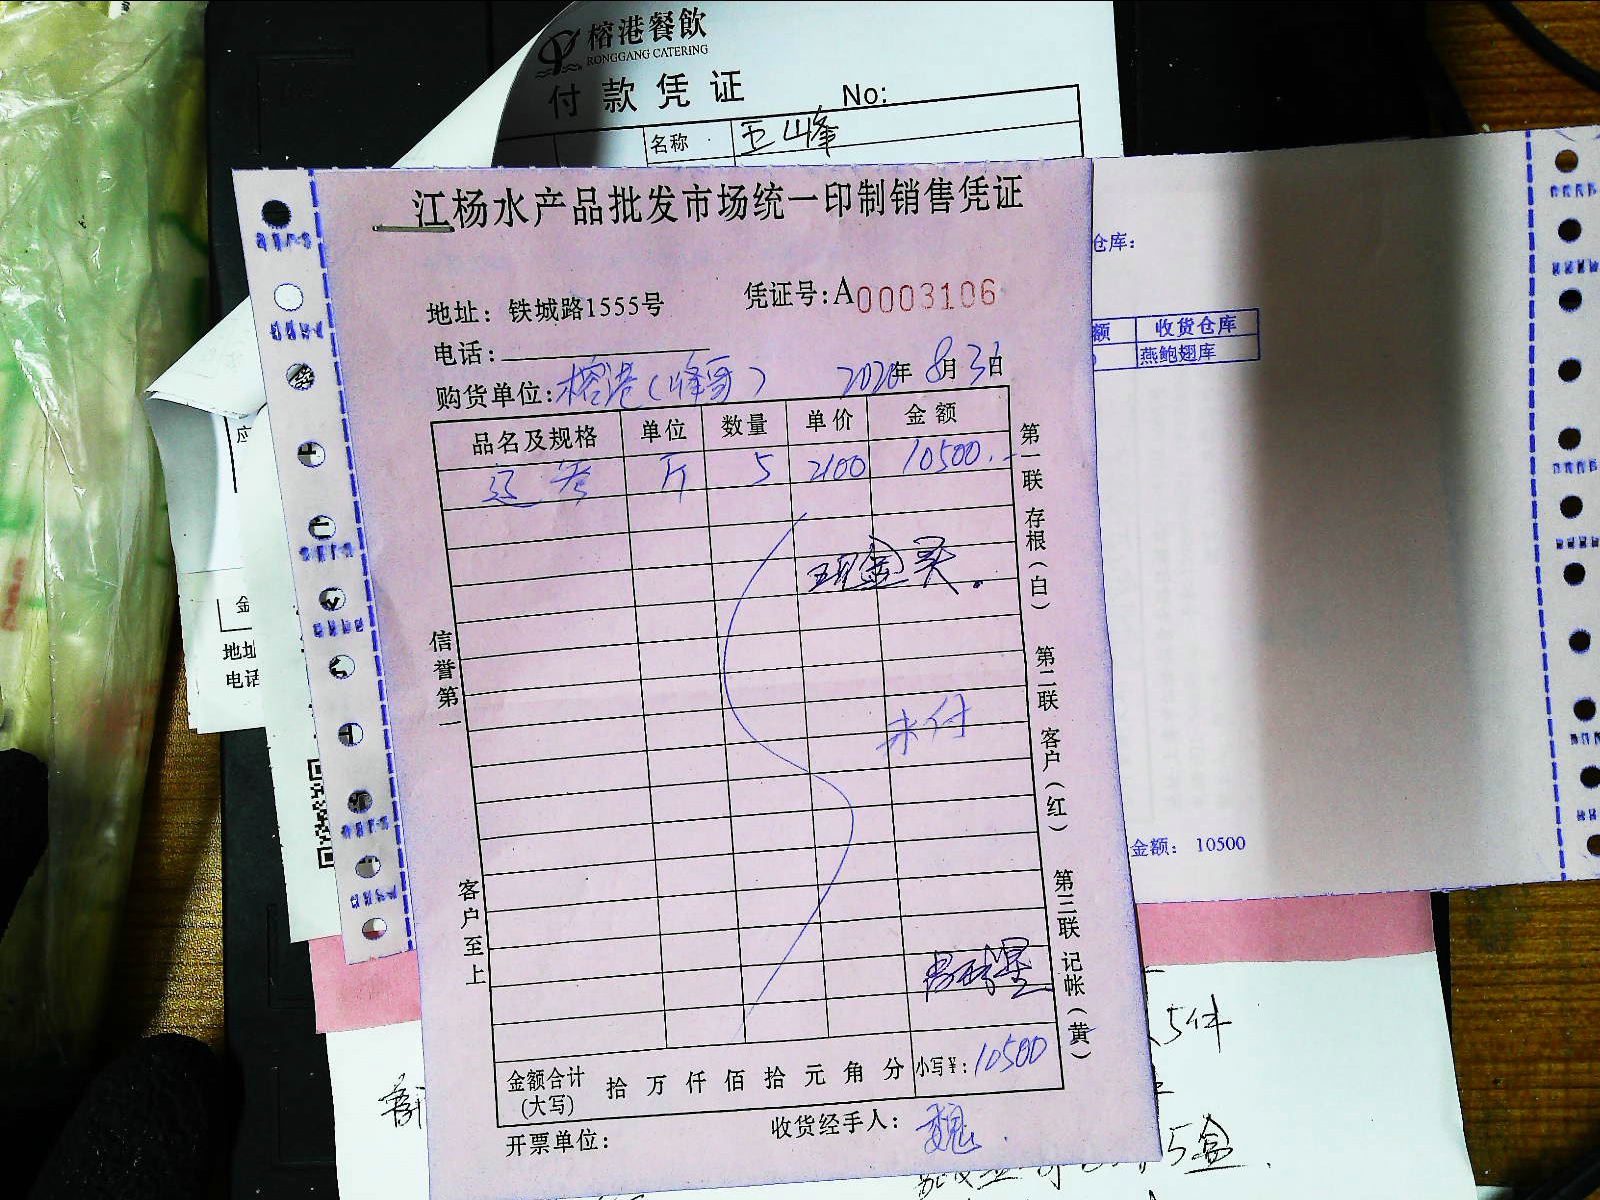 榕港餐飲
RONGGANG CATERING
付款凭证 No:
名称 王峰
江杨水产品批发市场统一印制销售凭证
仓库:
地址: 铁城路1555号 凭证号:A0003106
额 收货仓库
燕鲍翅库
电话:
购货单位:榕港(峰哥) 2020年8月3日
品名及规格 单位 数量 单价 金额
辽参 斤 5 2100 10500.-
现金买.
未付
信誉第一
客户至上
第一联 存根(白) 第二联 客户(红) 第三联 记帐(黄)
金额: 10500
金额合计(大写) 拾 万 仟 佰 拾 元 角 分 小写¥: 10500
开票单位: 收货经手人: 魏
金
地址
电话
5件
5盒.